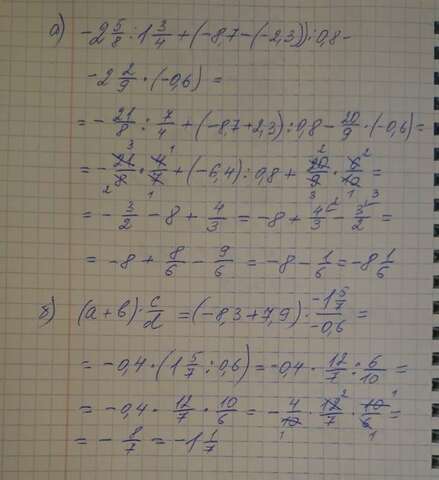 а) -2 5/8 : 1 3/4 + (-8,7-(-2,3)) : 0,8 -
-2 2/9 · (-0,6) =
= - 21/8 : 7/4 + (-8,7+2,3) : 0,8 - 20/9 · (-0,6) =
= - 21/8 · 4/7 + (-6,4) : 0,8 + 20/9 · 6/10 =
= - 3/2 - 8 + 4/3 = -8 + 4/3 - 3/2 =
= -8 + 8/6 - 9/6 = -8 - 1/6 = -8 1/6
б) (a+b) · c/d = (-8,3+7,9) · -1 5/7 / -0,6 =
= -0,4 · (1 5/7 : 0,6) = -0,4 · 12/7 : 6/10 =
= -0,4 · 12/7 · 10/6 = - 4/10 · 12/7 · 10/6 =
= - 8/7 = -1 1/7